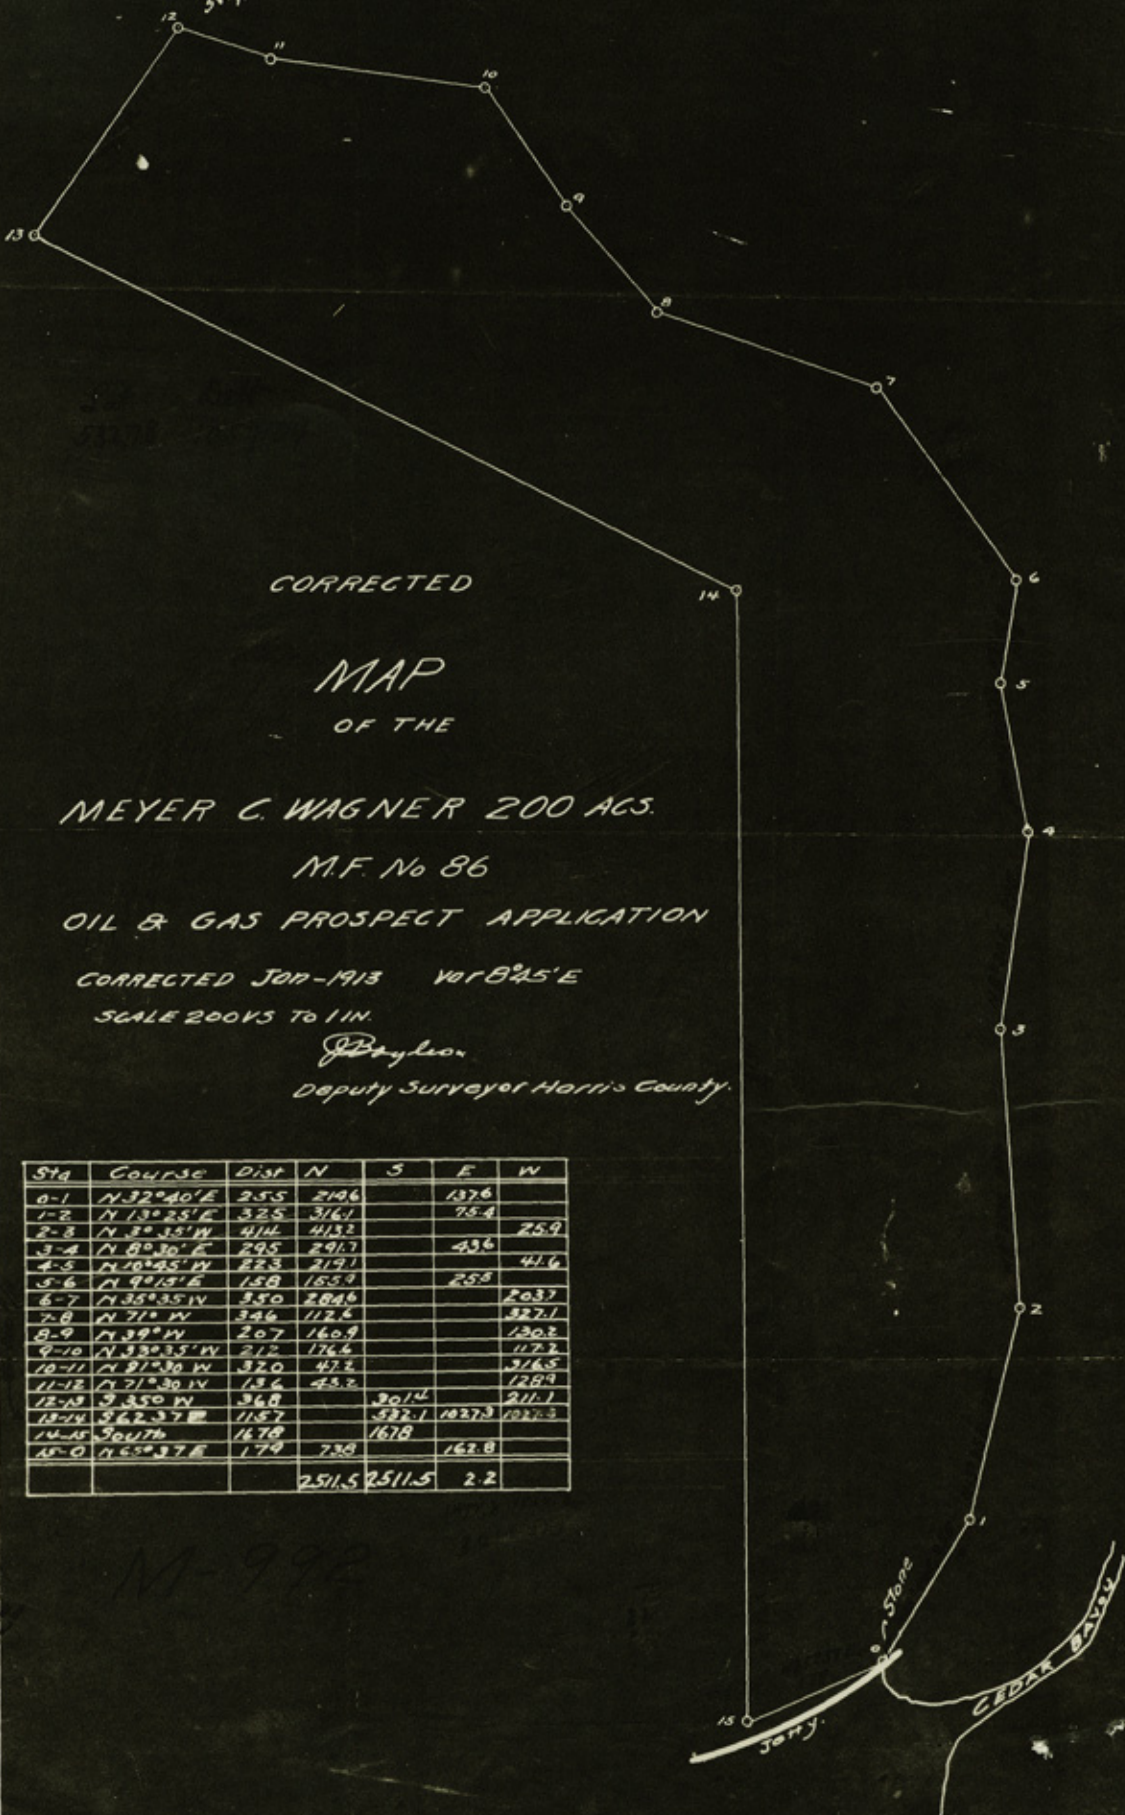 12
11
10
9
13
8
7
6
14
5
4
3
2
1
CORRECTED
MAP
OF THE
MEYER C. WAGNER 200 ACS.
M.F. No 86
OIL & GAS PROSPECT APPLICATION
CORRECTED Jan-1913 Var 8°45'E
SCALE 200 VS TO 1 IN.
Deputy Surveyor Harris County.
Sta Course Dist N S E W
0-1 N 32°40'E 255 214.6 137.6
1-2 N 13°25'E 325 316.1 75.4
2-3 N 3°35'W 414 413.2 25.9
3-4 N 8°30'E 295 291.7 43.6
4-5 N 10°45'W 223 219.1 41.6
5-6 N 9°15'E 158 155.9 25.5
6-7 N 35°35 W 350 284.6 203.7
7-8 N 71° W 346 112.6 327.1
8-9 N 39° W 207 160.9 130.2
9-10 N 33°35'W 212 176.6 117.2
10-11 N 81°30 W 320 47.2 316.5
11-12 N 71°30 W 136 43.2 128.9
12-13 S 35° W 368 301.4 211.1
13-14 S 62 37 E 1157 532.1 1027.3
14-15 South 1678 1678
15-0 N 65°37 E 179 73.8 162.8
2511.5 2511.5 2.2
M-992
Stone
0
15
Jetty.
CEDAR BAYOU